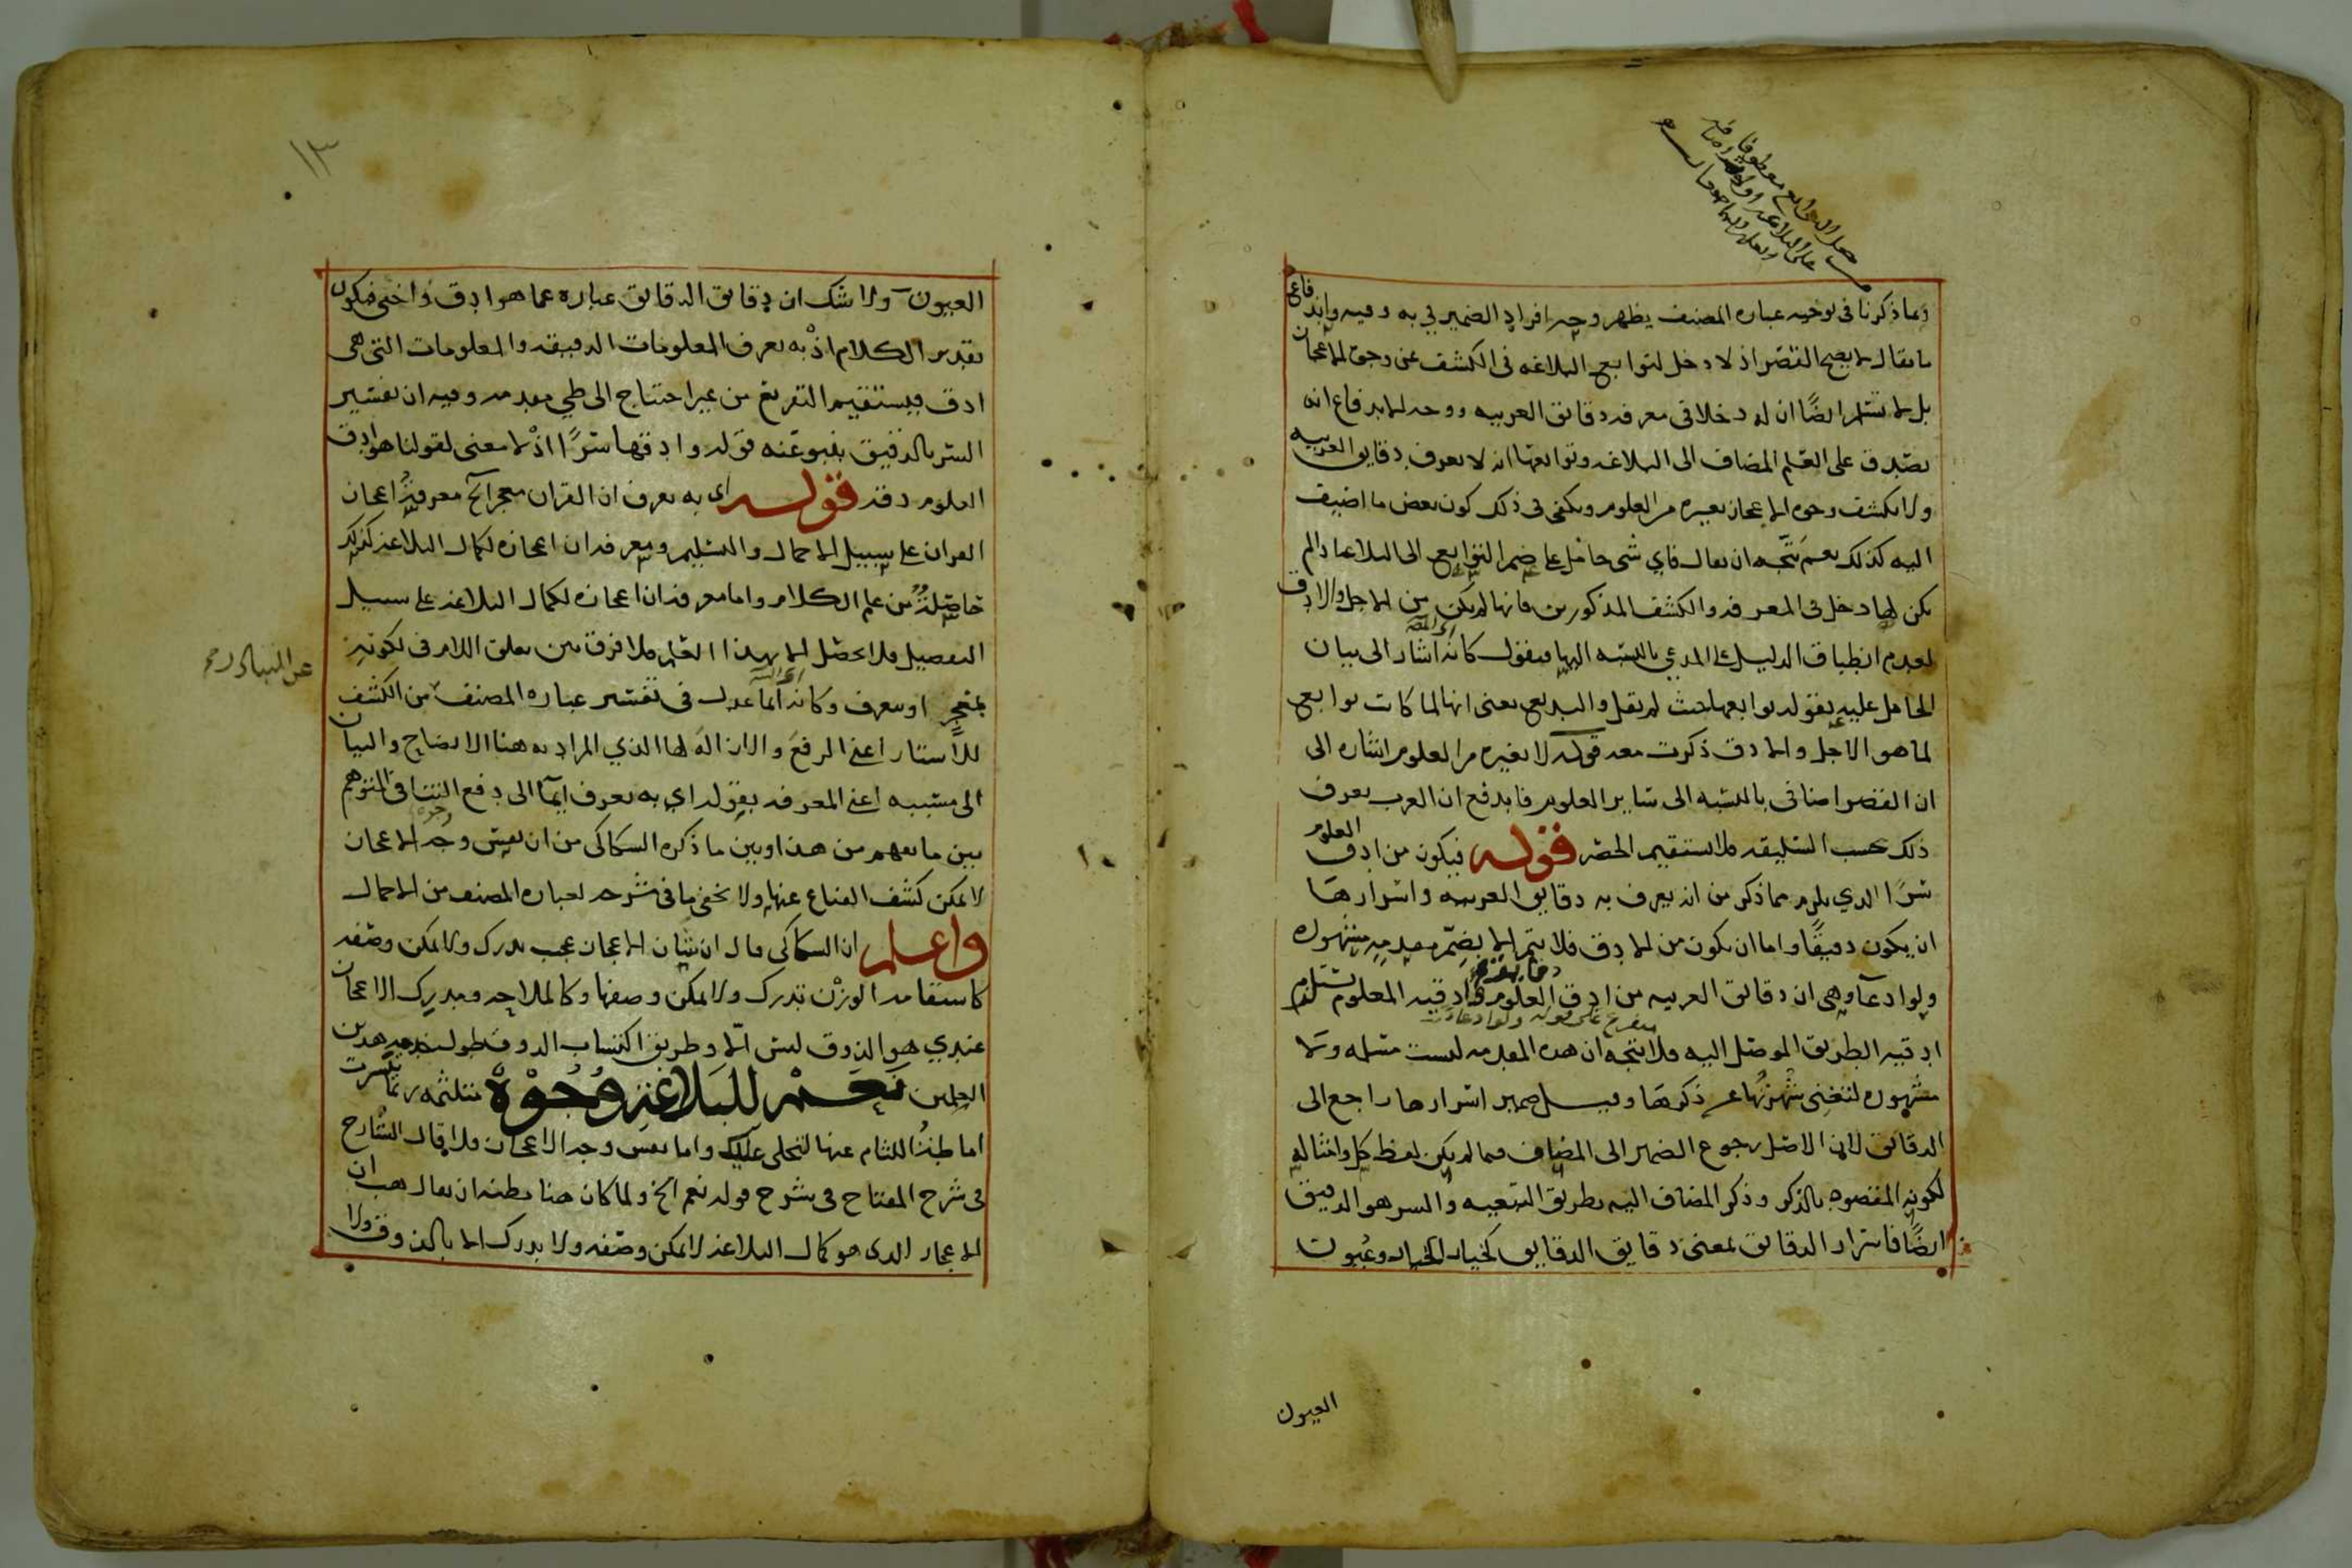 وبما ذكرنا فى توجيه عبارة المصنف يظهر وجه افراد الضمير في به وفيه واندفاع
ما يقال لا يصح القصر اذ لا دخل لتوابع البلاغة فى الكشف عن وجوه الاعجاز
بل لا نسلم ايضًا ان له دخلا فى معرفة دقائق العربية ووجه الاندفاع انه
يصدق على العلم المضاف الى البلاغة وتوابعها انه لا يعرف دقايق العربية
ولا يكشف وجوه الاعجاز بغيره من العلوم ويكفى فى ذلك كون بعض ما اضيف
اليه كذلك نعم يتجه ان يقال فاي شى حامل على ضم التوابع الى البلاغة اذا لم
يكن لها دخل فى المعرفة والكشف المذكورين فانها لم يكن من الاجل والادق
لعدم انطباق الدليل على المدعي بالنسبة اليها فنقول كانه اشار الى بيان
الحامل عليه بقوله توابعها حيث لم يقل والبديع يعنى انها لما كانت توابع
لما هو الاجل والادق ذكرت معه قوله لا بغيره من العلوم اشارة الى
ان القصر اضافى بالنسبة الى ساير العلوم فاندفع ان العرب يعرف
ذلك بحسب السليقة فلا يستقيم الحصر قوله فيكون من ادق العلوم
سرًا الذي يلزم مما ذكر من انه يعرف به دقايق العربية واسرارها
ان يكون دقيقًا واما ان يكون من الادق فلا يتم الا بضم مقدمة مشهورة
ولو ادعآ وهى ان دقائق العربية من ادق العلوم وادقية المعلوم يستلزم
متفرع على قوله ولو ادعاء
ادقية الطريق الموصل اليه فلا يتجه ان هذه المقدمة ليست مسلمة ولا
مشهورة لتغنى شهرتها عن ذكرها وقيل ضمير اسرارها راجع الى
الدقائق لان الاصل رجوع الضمير الى المضاف فيما لم يكن لفظ كل وامثاله
لكونه المقصود بالذكر وذكر المضاف اليه بطريق التبعية والسر هو الدقيق
ايضًا فاسرار الدقائق بمعنى دقايق الدقايق كخيار الخيار وعيون
العيون
١٣
العيون ولا شك ان دقايق الدقايق عبارة عما هو ادق واخفى فيكون
تقدير الكلام اذ به يعرف المعلومات الدقيقة والمعلومات التى هى
ادق فيستقيم التفريع من غير احتياج الى طي مقدمة وفيه ان تفسير
السر بالدقيق ينبو عنه قوله وادقها سرًا اذ لا معنى لقولنا هو ادق
العلوم دقة قوله اى به يعرف ان القران معجز آلخ معرفة اعجاز
القران على سبيل الاجمال والتسليم ومعرفة ان اعجازه لكمال البلاغة كذلك
حاصلة من علم الكلام واما معرفة ان اعجازه لكمال البلاغة على سبيل
التفصيل فلا يحصل الا بهذا العلم فلا فرق بين تعلق اللام فى لكونه
بمعجز او بيعرف وكانه انما عدل فى تفسير عبارة المصنف من الكشف
للاستار اعنى الرفع والازالة لها الذي المراد به هنا الايضاح والبيان
الى مسببه اعنى المعرفة بقوله اي به يعرف ايمآ الى دفع التنافى المتوهم
بين ما يفهم من هذا وبين ما ذكره السكاكى من ان نفس وجه الاعجاز
لا يمكن كشف القناع عنها ولا يخفى ما فى شرحه لعبارة المصنف من الاجمال
واعلم ان السكاكى قال ان شان الاعجاز عجب يدرك ولا يمكن وصفه
كاستقامة الوزن تدرك ولا يمكن وصفها وكالملاحة ومدرك الاعجاز
عندي هو الذوق ليس الا وطريق اكتساب الذوق طول خدمة هذين
العلمين نعم للبلاغة وجوه متلثمة ربما تيسرت
اماطة اللثام عنها لتجلى عليك واما نفس وجه الاعجاز فلا قال الشارح
فى شرح المفتاح فى شرح قوله نعم الخ ولما كان هنا مظنة ان يقال هب ان
الاعجاز الذى هو كمال البلاغة لا يمكن وصفه ولا يدرك الا بالذوق ولا